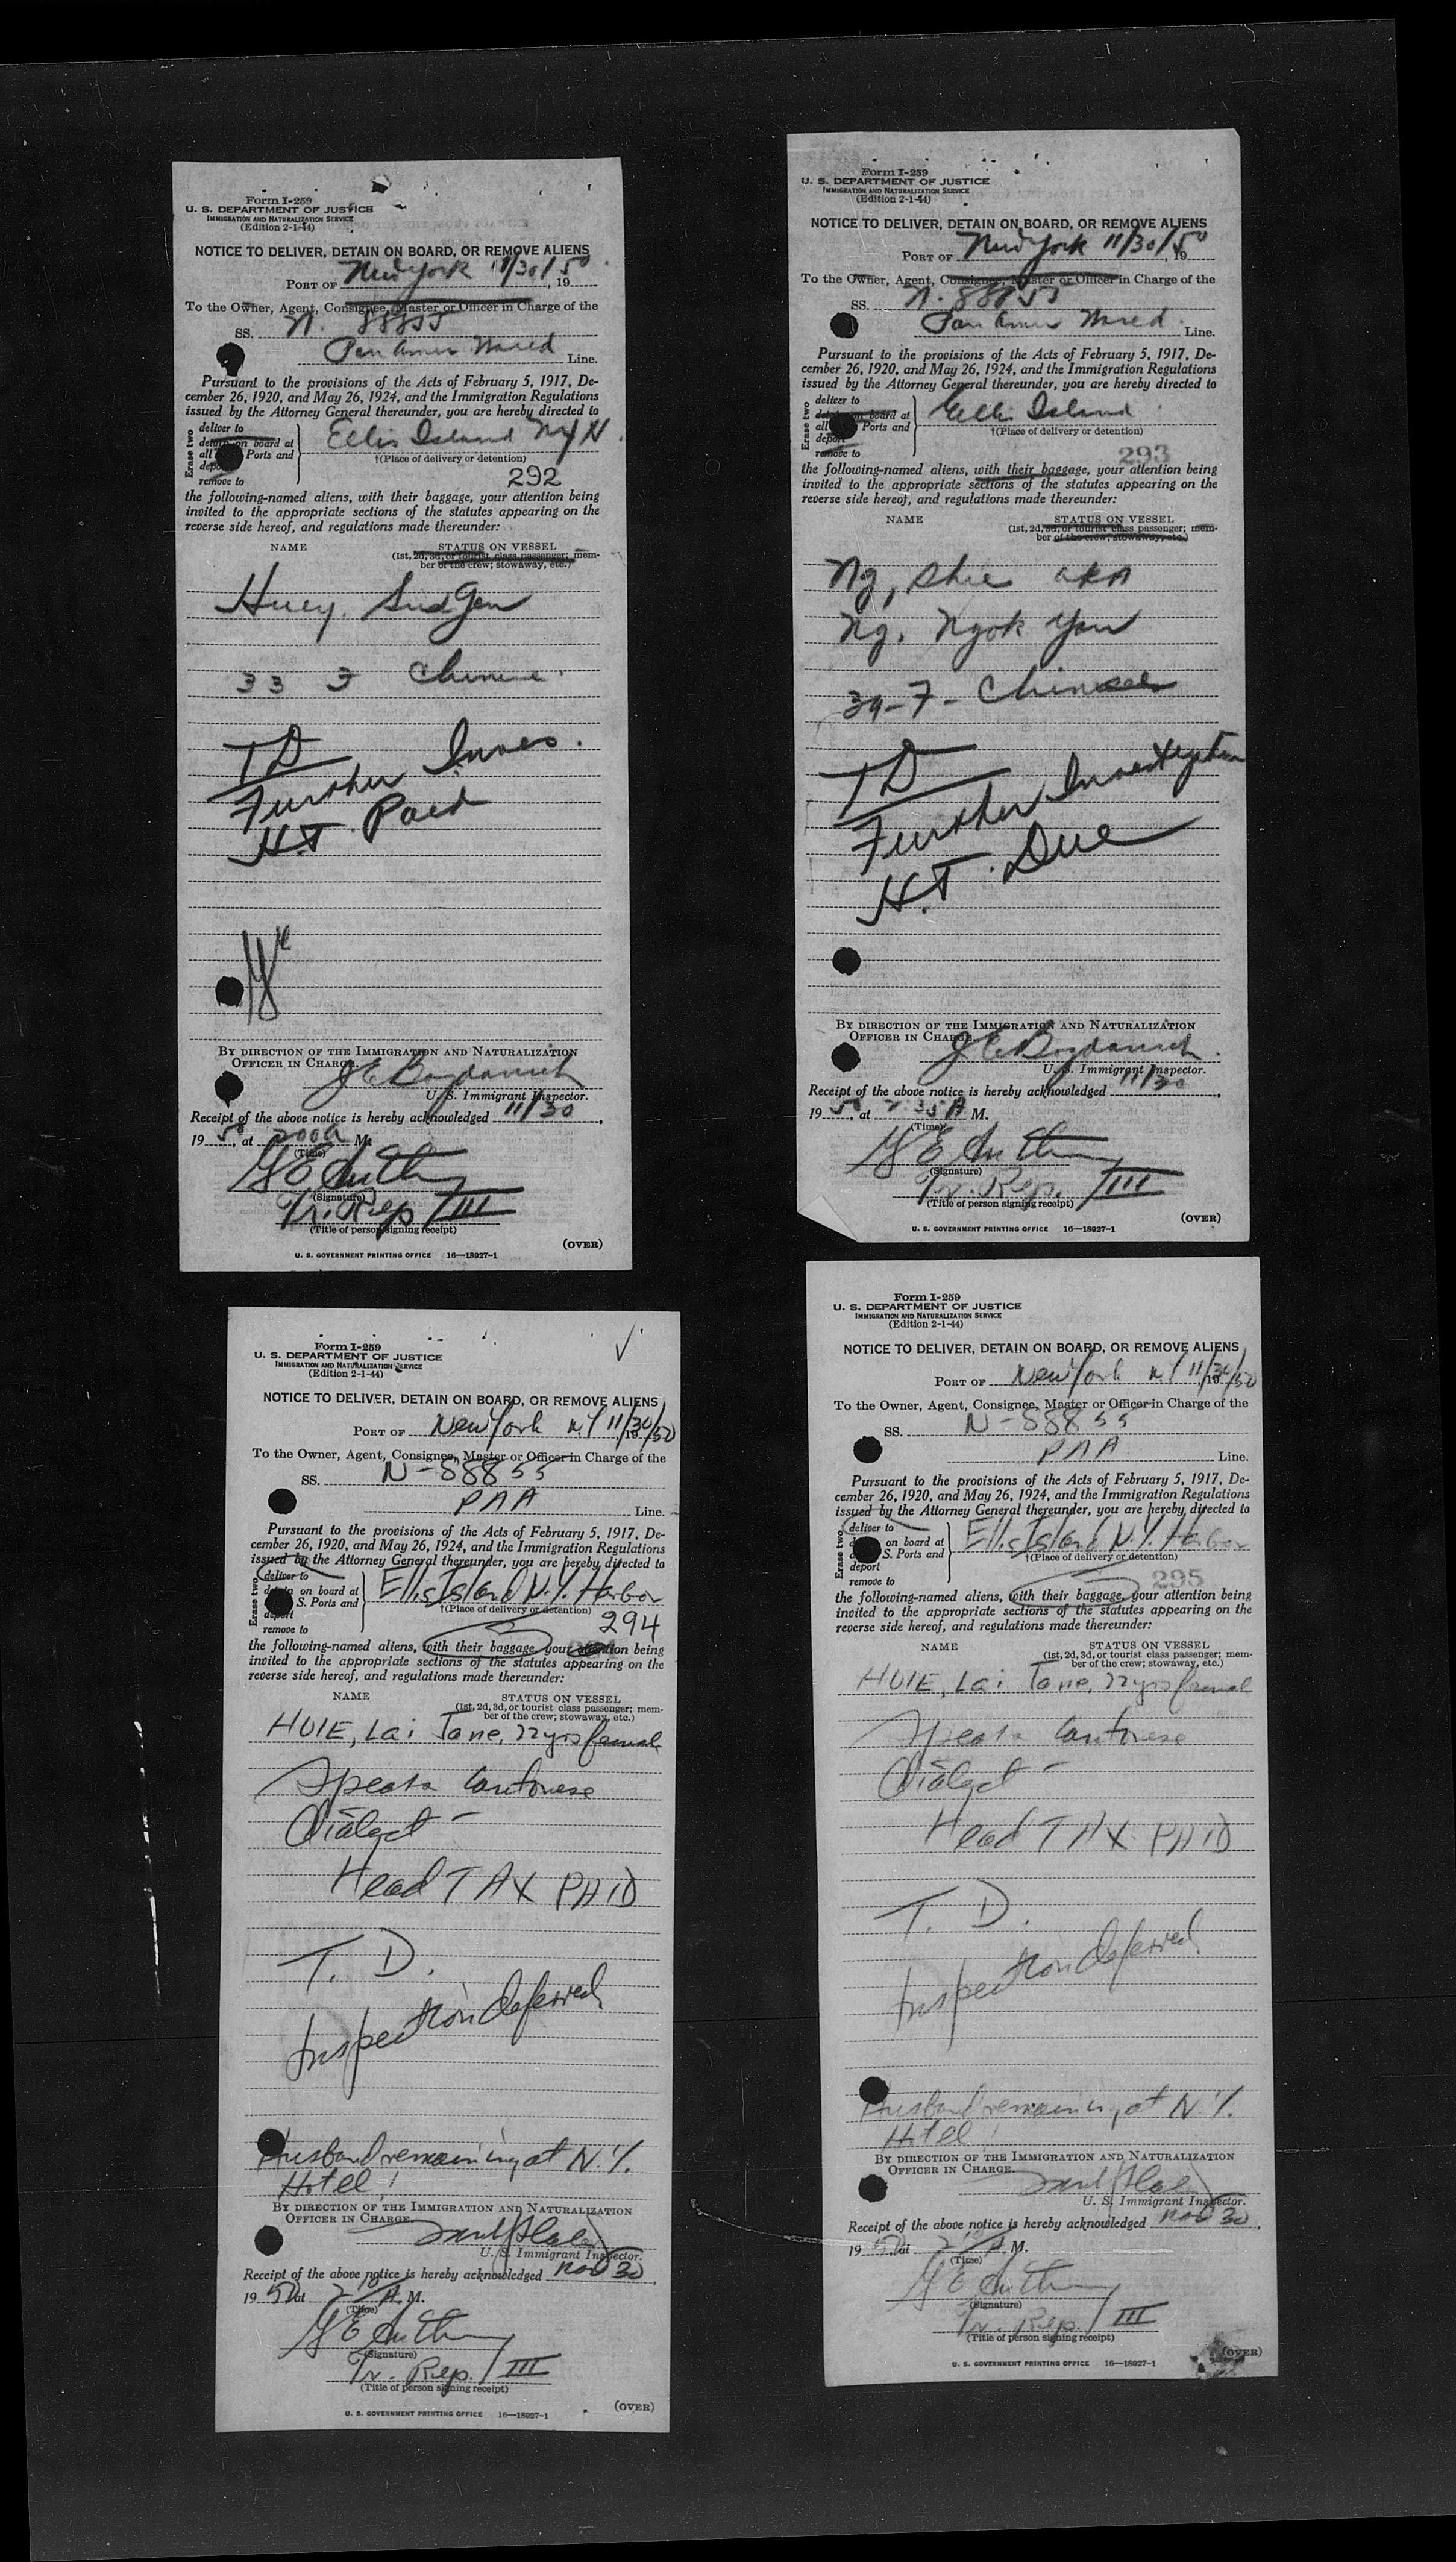 Form I-259
U. S. DEPARTMENT OF JUSTICE
IMMIGRATION AND NATURALIZATION SERVICE
(Edition 2-1-44)
NOTICE TO DELIVER, DETAIN ON BOARD, OR REMOVE ALIENS
PORT OF New York 11/30/50, 19
To the Owner, Agent, Consignee, Master or Officer in Charge of the
SS. N. 88855
Pan Amer Line.
Pursuant to the provisions of the Acts of February 5, 1917, De-
cember 26, 1920, and May 26, 1924, and the Immigration Regulations
issued by the Attorney General thereunder, you are hereby directed to
Erase two
deliver to
detain on board at
all Ports and
deport
remove to
Ellis Island NYH.
†(Place of delivery or detention)
292
the following-named aliens, with their baggage, your attention being
invited to the appropriate sections of the statutes appearing on the
reverse side hereof, and regulations made thereunder:
NAME STATUS ON VESSEL
(1st, 2d, 3d, or tourist class passenger; mem-
ber of the crew; stowaway, etc.)
Huey, Gen
33 Chinese
TD
Further Inves.
H.T. Paid
BY DIRECTION OF THE IMMIGRATION AND NATURALIZATION
OFFICER IN CHARGE.
J E Bogdanich
U. S. Immigrant Inspector.
Receipt of the above notice is hereby acknowledged 11/30,
19 50, at 200A M.
(Time)
G E
(Signature)
Tr. Rep III
(Title of person signing receipt)
(OVER)
U. S. GOVERNMENT PRINTING OFFICE 16—18927-1
Form I-259
U. S. DEPARTMENT OF JUSTICE
IMMIGRATION AND NATURALIZATION SERVICE
(Edition 2-1-44)
NOTICE TO DELIVER, DETAIN ON BOARD, OR REMOVE ALIENS
PORT OF New York 11/30/50, 19
To the Owner, Agent, Consignee, Master or Officer in Charge of the
SS. N. 88855
Pan Amer Line.
Pursuant to the provisions of the Acts of February 5, 1917, De-
cember 26, 1920, and May 26, 1924, and the Immigration Regulations
issued by the Attorney General thereunder, you are hereby directed to
Erase two
deliver to
detain on board at
all Ports and
deport
remove to
Ellis Island
†(Place of delivery or detention)
293
the following-named aliens, with their baggage, your attention being
invited to the appropriate sections of the statutes appearing on the
reverse side hereof, and regulations made thereunder:
NAME STATUS ON VESSEL
(1st, 2d, 3d, or tourist class passenger; mem-
ber of the crew; stowaway, etc.)
Ng, Shee aka
Ng, Ngok You
39-F- Chinese
TD
Further Investigation
H.T. Due
BY DIRECTION OF THE IMMIGRATION AND NATURALIZATION
OFFICER IN CHARGE.
J E Bogdanich
U. S. Immigrant Inspector.
Receipt of the above notice is hereby acknowledged 11/30
19 50, at 35 A M.
(Time)
G E
(Signature)
Tr. Rep. III
(Title of person signing receipt)
(OVER)
U. S. GOVERNMENT PRINTING OFFICE 16—18927-1
Form I-259
U. S. DEPARTMENT OF JUSTICE
IMMIGRATION AND NATURALIZATION SERVICE
(Edition 2-1-44)
NOTICE TO DELIVER, DETAIN ON BOARD, OR REMOVE ALIENS
PORT OF New York NY 11/30/50 19
To the Owner, Agent, Consignee, Master or Officer in Charge of the
SS. N-88855
PAA Line.
Pursuant to the provisions of the Acts of February 5, 1917, De-
cember 26, 1920, and May 26, 1924, and the Immigration Regulations
issued by the Attorney General thereunder, you are hereby directed to
Erase two
deliver to
detain on board at
S. Ports and
deport
remove to
Ellis Island N.Y. Harbor
†(Place of delivery or detention)
294
the following-named aliens, with their baggage, your attention being
invited to the appropriate sections of the statutes appearing on the
reverse side hereof, and regulations made thereunder:
NAME STATUS ON VESSEL
(1st, 2d, 3d, or tourist class passenger; mem-
ber of the crew; stowaway, etc.)
HUIE, Lai Jane, 22yrs female
Speaks Cantonese
Dialect –
Head TAX PAID
T. D.
Inspection deferred
Husband remaining at N.Y.
Hotel!
BY DIRECTION OF THE IMMIGRATION AND NATURALIZATION
OFFICER IN CHARGE.
U. S. Immigrant Inspector.
Receipt of the above notice is hereby acknowledged Nov 30,
19 50 at 2 10 A. M.
(Time)
G E
(Signature)
Tr. Rep. III
(Title of person signing receipt)
(OVER)
U. S. GOVERNMENT PRINTING OFFICE 16—18927-1
Form I-259
U. S. DEPARTMENT OF JUSTICE
IMMIGRATION AND NATURALIZATION SERVICE
(Edition 2-1-44)
NOTICE TO DELIVER, DETAIN ON BOARD, OR REMOVE ALIENS
PORT OF New York NY 11/30/50 19
To the Owner, Agent, Consignee, Master or Officer in Charge of the
SS. N-88855
PAA Line.
Pursuant to the provisions of the Acts of February 5, 1917, De-
cember 26, 1920, and May 26, 1924, and the Immigration Regulations
issued by the Attorney General thereunder, you are hereby directed to
Erase two
deliver to
on board at
S. Ports and
deport
remove to
Ellis Island N.Y. Harbor
†(Place of delivery or detention)
295
the following-named aliens, with their baggage, your attention being
invited to the appropriate sections of the statutes appearing on the
reverse side hereof, and regulations made thereunder:
NAME STATUS ON VESSEL
(1st, 2d, 3d, or tourist class passenger; mem-
ber of the crew; stowaway, etc.)
HUIE, Lai Jane, 22yrs female
Speaks Cantonese
Dialect –
Head TAX PAID
T. D.
Inspection deferred
Husband remaining at N.Y.
Hotel!
BY DIRECTION OF THE IMMIGRATION AND NATURALIZATION
OFFICER IN CHARGE.
U. S. Immigrant Inspector.
Receipt of the above notice is hereby acknowledged Nov 30,
19 50 at 2 10 A. M.
(Time)
G E
(Signature)
Tr. Rep. III
(Title of person signing receipt)
(OVER)
U. S. GOVERNMENT PRINTING OFFICE 16—18927-1